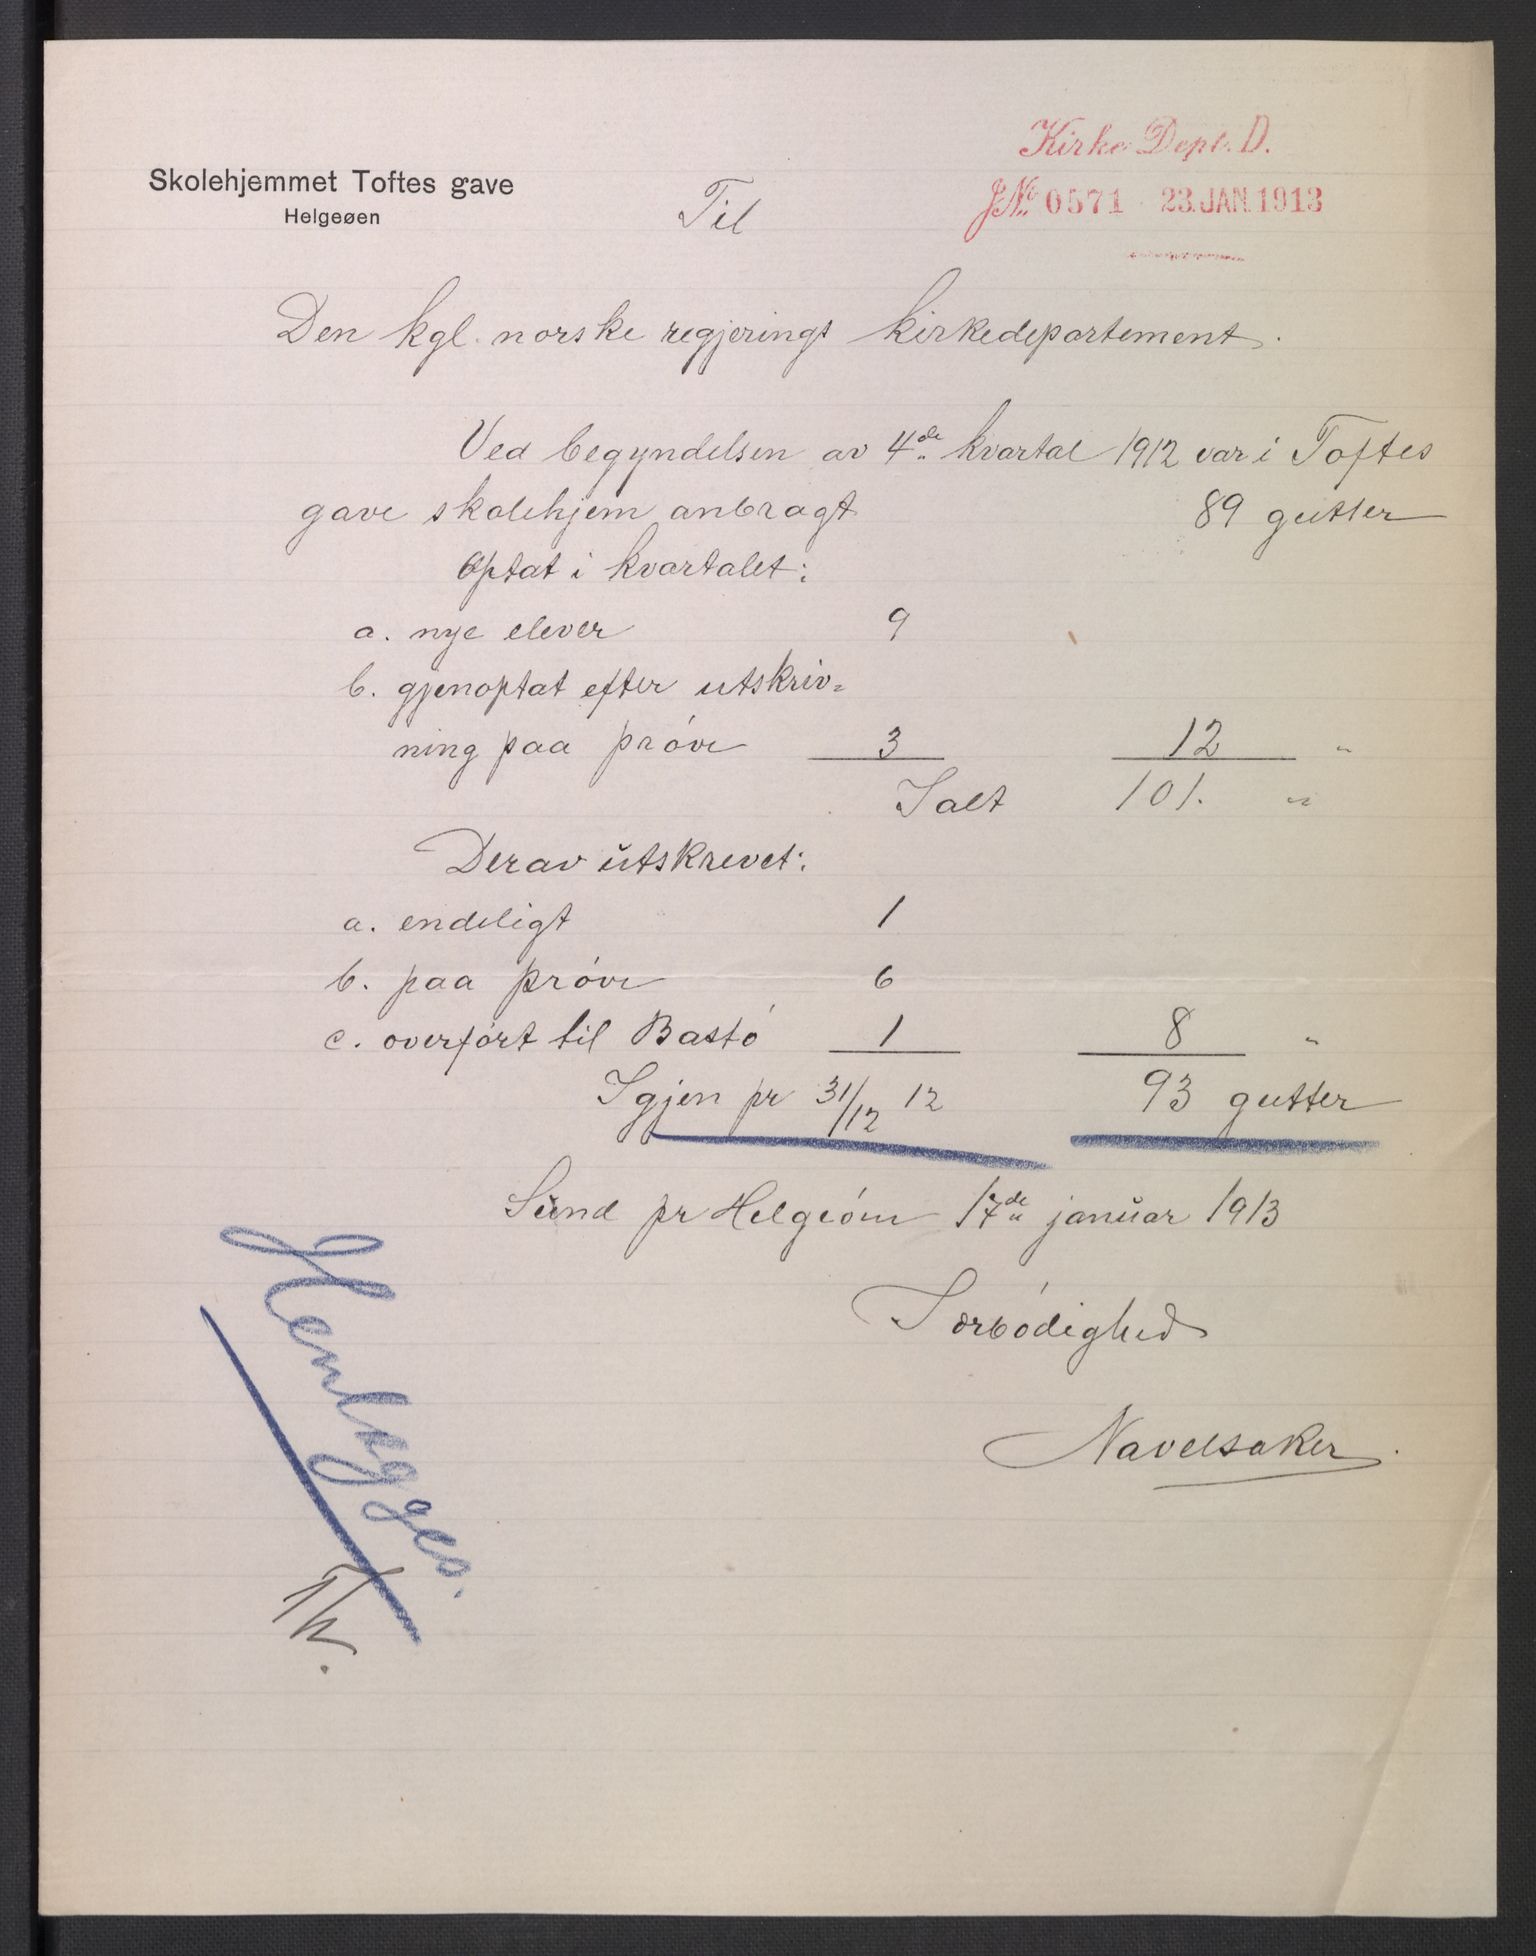 Kirke Dept. D.
Skolehjemmet Toftes gave
Helgeøen
J.№ 0571 23. JAN. 1913
Til
Den kgl. norske regjerings kirkedepartement.
Ved begyndelsen av 4de kvartal 1912 var i Toftes
gave skolehjem anbragt 89 gutter
Optat i kvartalet:
a. nye elever 9
b. gjenoptat efter utskriv=
ning paa prøve 3 12 "
Ialt 101. "
Derav utskrevet:
a. endeligt 1
b. paa prøve 6
c. overført til Bastø 1 8 "
Igjen pr 31/12 12 93 gutter
Sund pr Helgeøen 17de januar 1913
Ærbødighed
Navelsaker.
Henlægges.
Th.